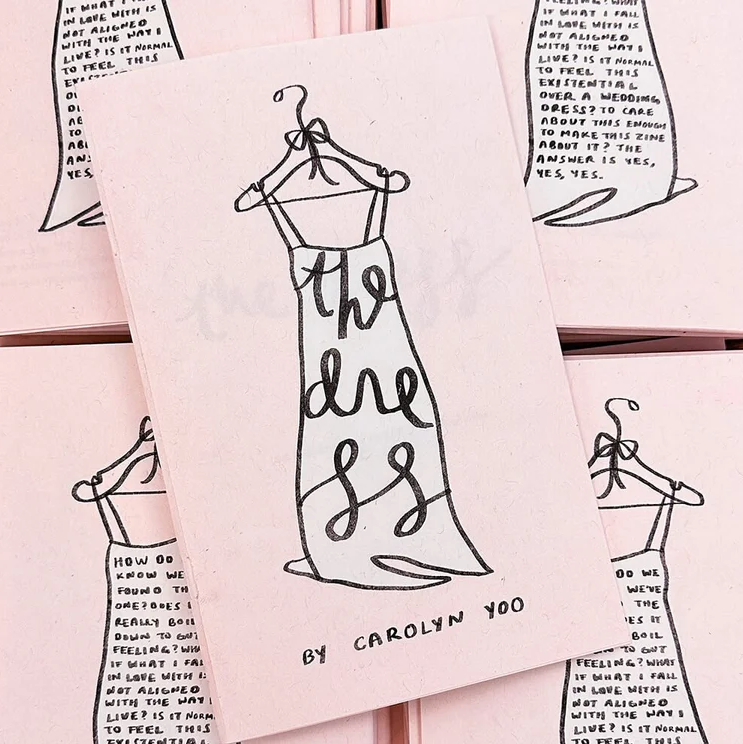 IF WHAT I FALL
IN LOVE WITH IS
NOT ALIGNED
WITH THE WAY I
LIVE? IS IT NORMAL
TO FEEL THIS
YES,
FEELING? WHAT
IF WHAT I FALL
IN LOVE WITH IS
NOT ALIGNED
WITH THE WAY I
LIVE? IS IT NORMAL
TO FEEL THIS
EXISTENTIAL
OVER A WEDDING
DRESS? TO CARE
ABOUT THIS ENOUGH
TO MAKE THIS ZINE
ABOUT IT? THE
ANSWER IS YES,
YES, YES.
the
dre
ss
BY CAROLYN YOO
HOW DO
KNOW WE
FOUND
ONE? DOES
REALLY BOIL
DOWN TO GUT
FEELING?
IF WHAT I
IN LOVE WITH IS
NOT ALIGNED
WITH THE WAY I
LIVE? IS IT
TO FEEL THIS
EXISTENTIAL
DO WE
WE'VE
THE
IT
BOIL
TO GUT
FEELING? WHAT
IF WHAT I FALL
IN LOVE WITH IS
NOT ALIGNED
WITH THE WAY I
LIVE? IS IT NORMAL
TO FEEL THIS
EXISTENTIAL